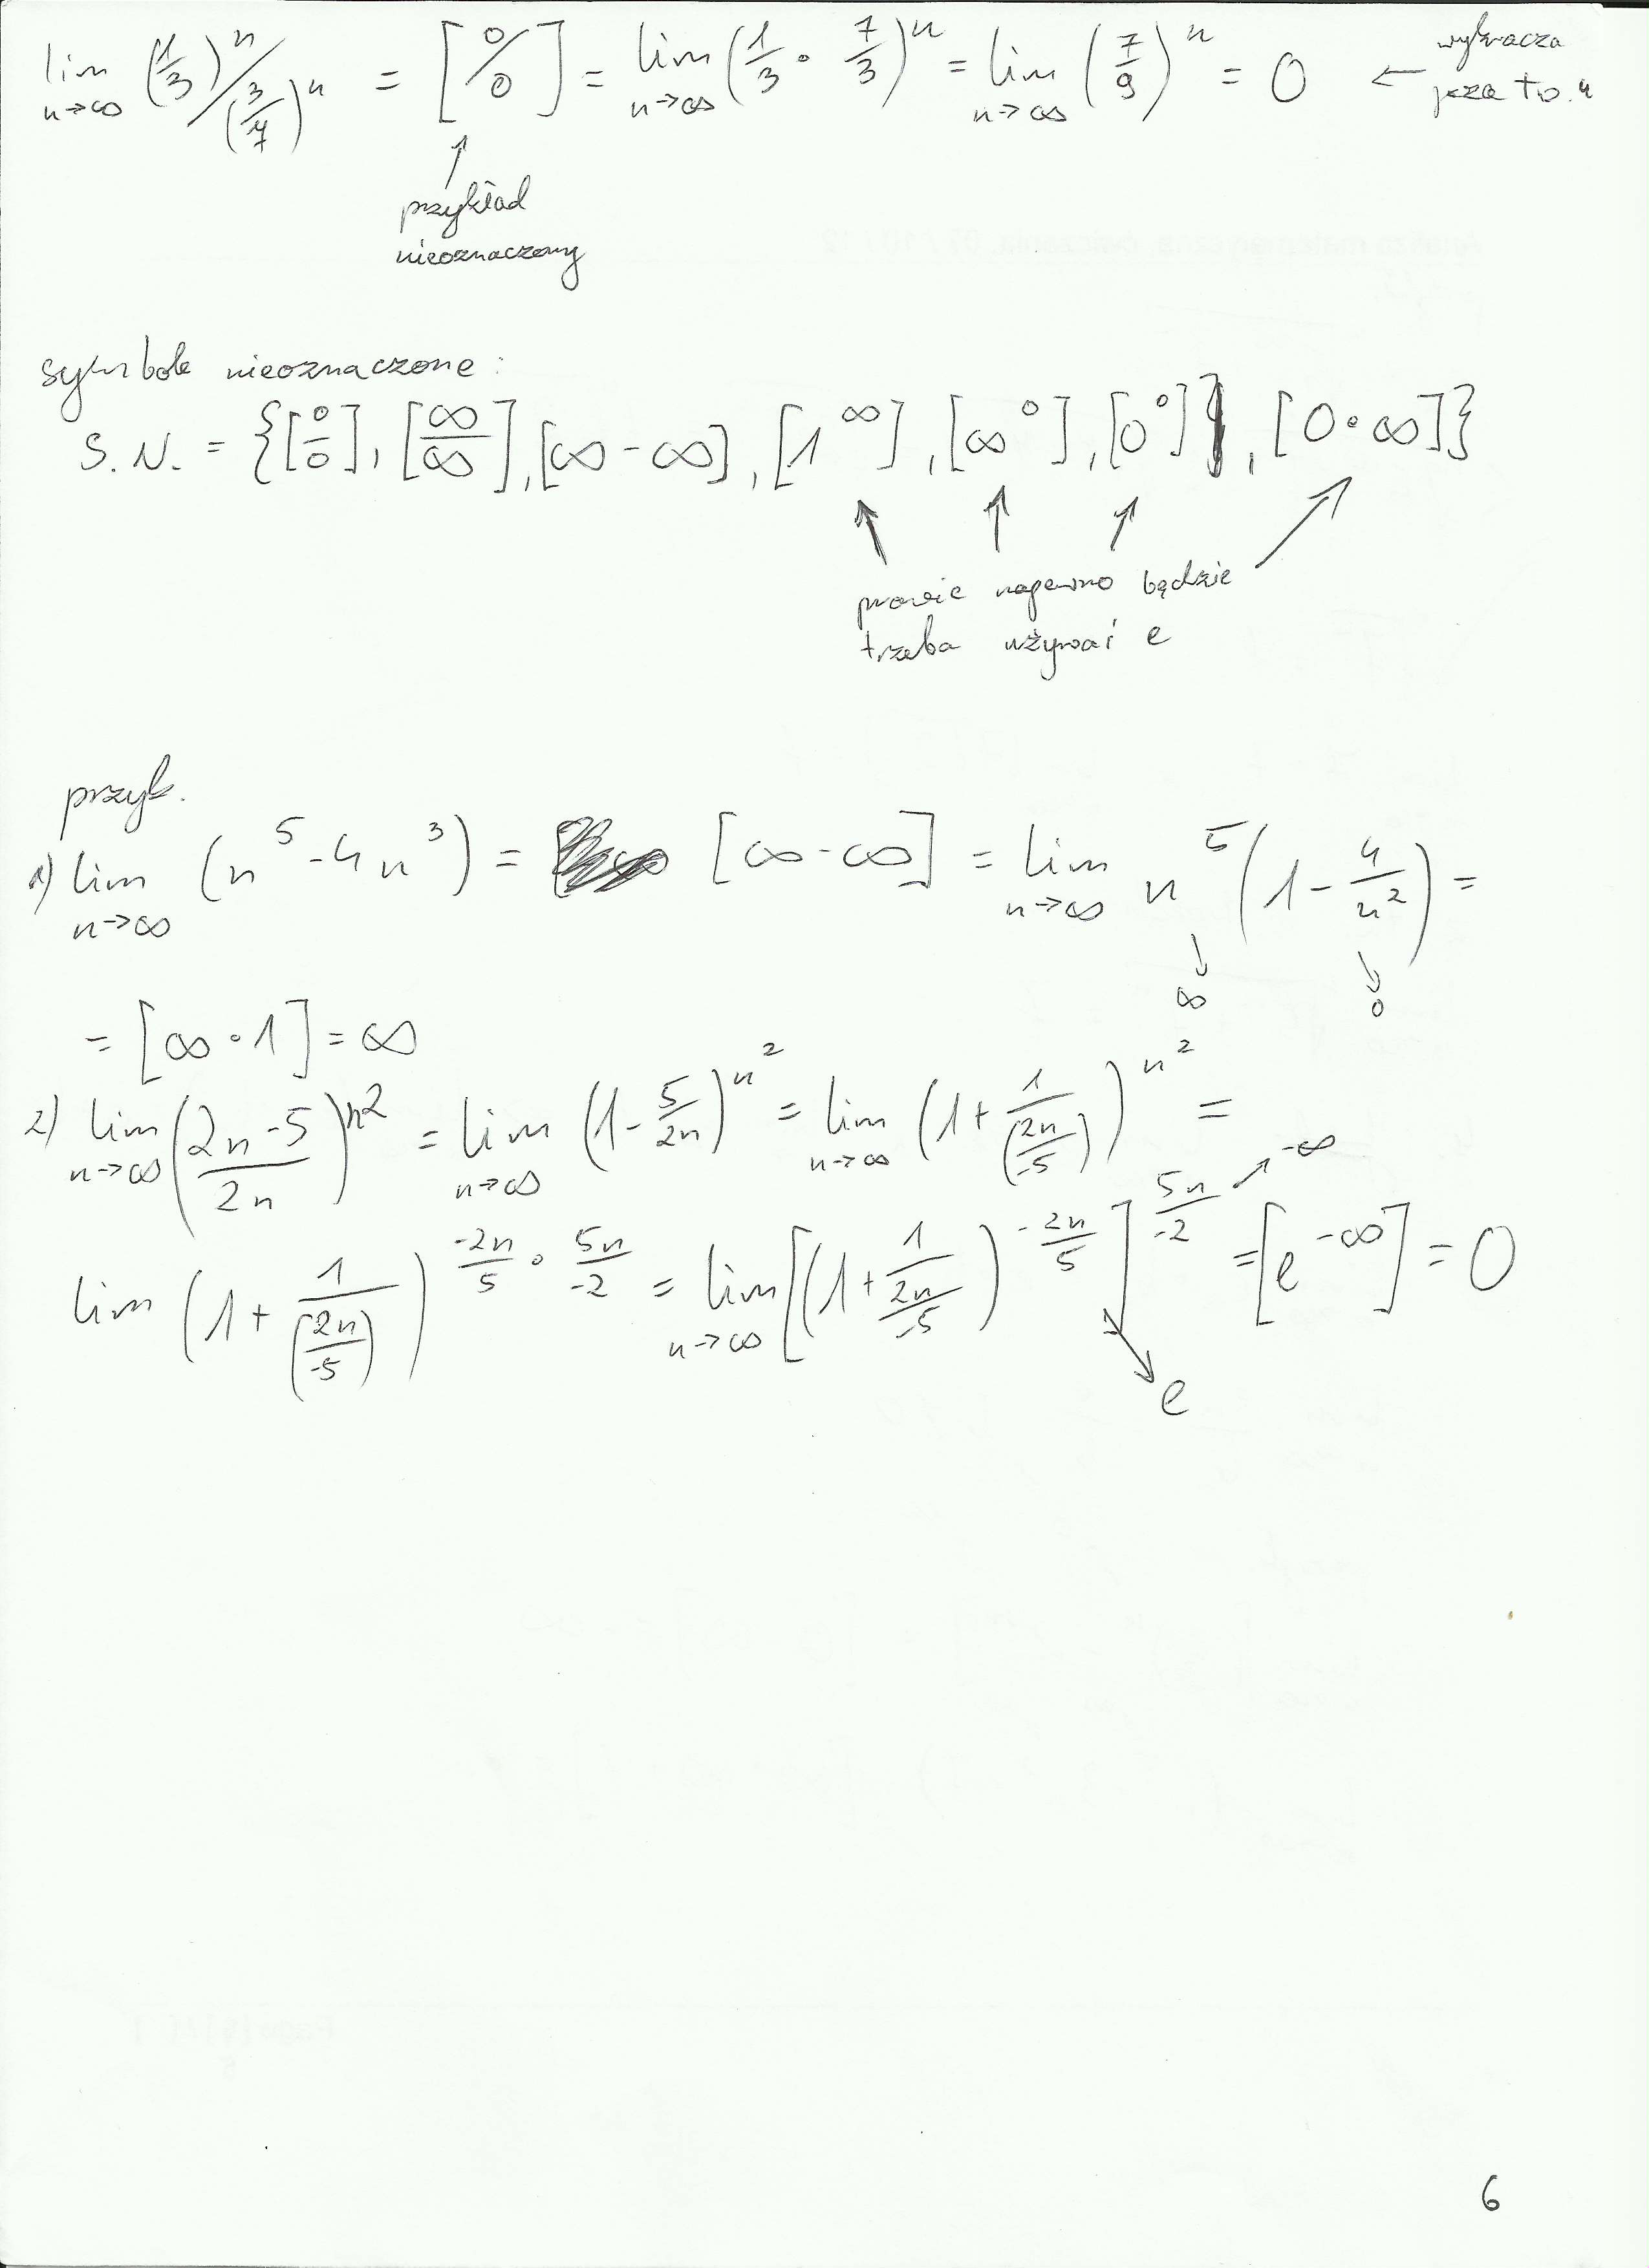 lim n→∞ (1/3)^n / (3/7)^n = [0/0] = lim n→∞ (1/3 · 7/3)^n = lim n→∞ (7/9)^n = 0 ← wykracza
poza to.
↑
przykład
nieoznaczony
symbole nieoznaczone:
S.N. = {[0/0], [∞/∞], [∞ - ∞], [1^∞], [∞^0], [0^0], [0·∞]}
prawie napewno będzie
trzeba używać e
przyk.
1) lim n→∞ (n^5 - 4n^3) = [∞-∞] = lim n→∞ n^5 (1 - 4/n^2) =
↓ ∞ ↓ 0
= [∞·1] = ∞
2) lim n→∞ ((2n-5)/2n)^n^2 = lim n→∞ (1 - 5/2n)^n^2 = lim n→∞ (1 + 1/(2n/-5))^n^2 =
lim (1 + 1/(2n/-5))^(-2n/5 · 5n/-2) = lim n→∞ [(1 + 1/(2n/-5))^(-2n/5)]^(5n/-2) ↗ -∞ = [e^-∞] = 0
↘ e
6